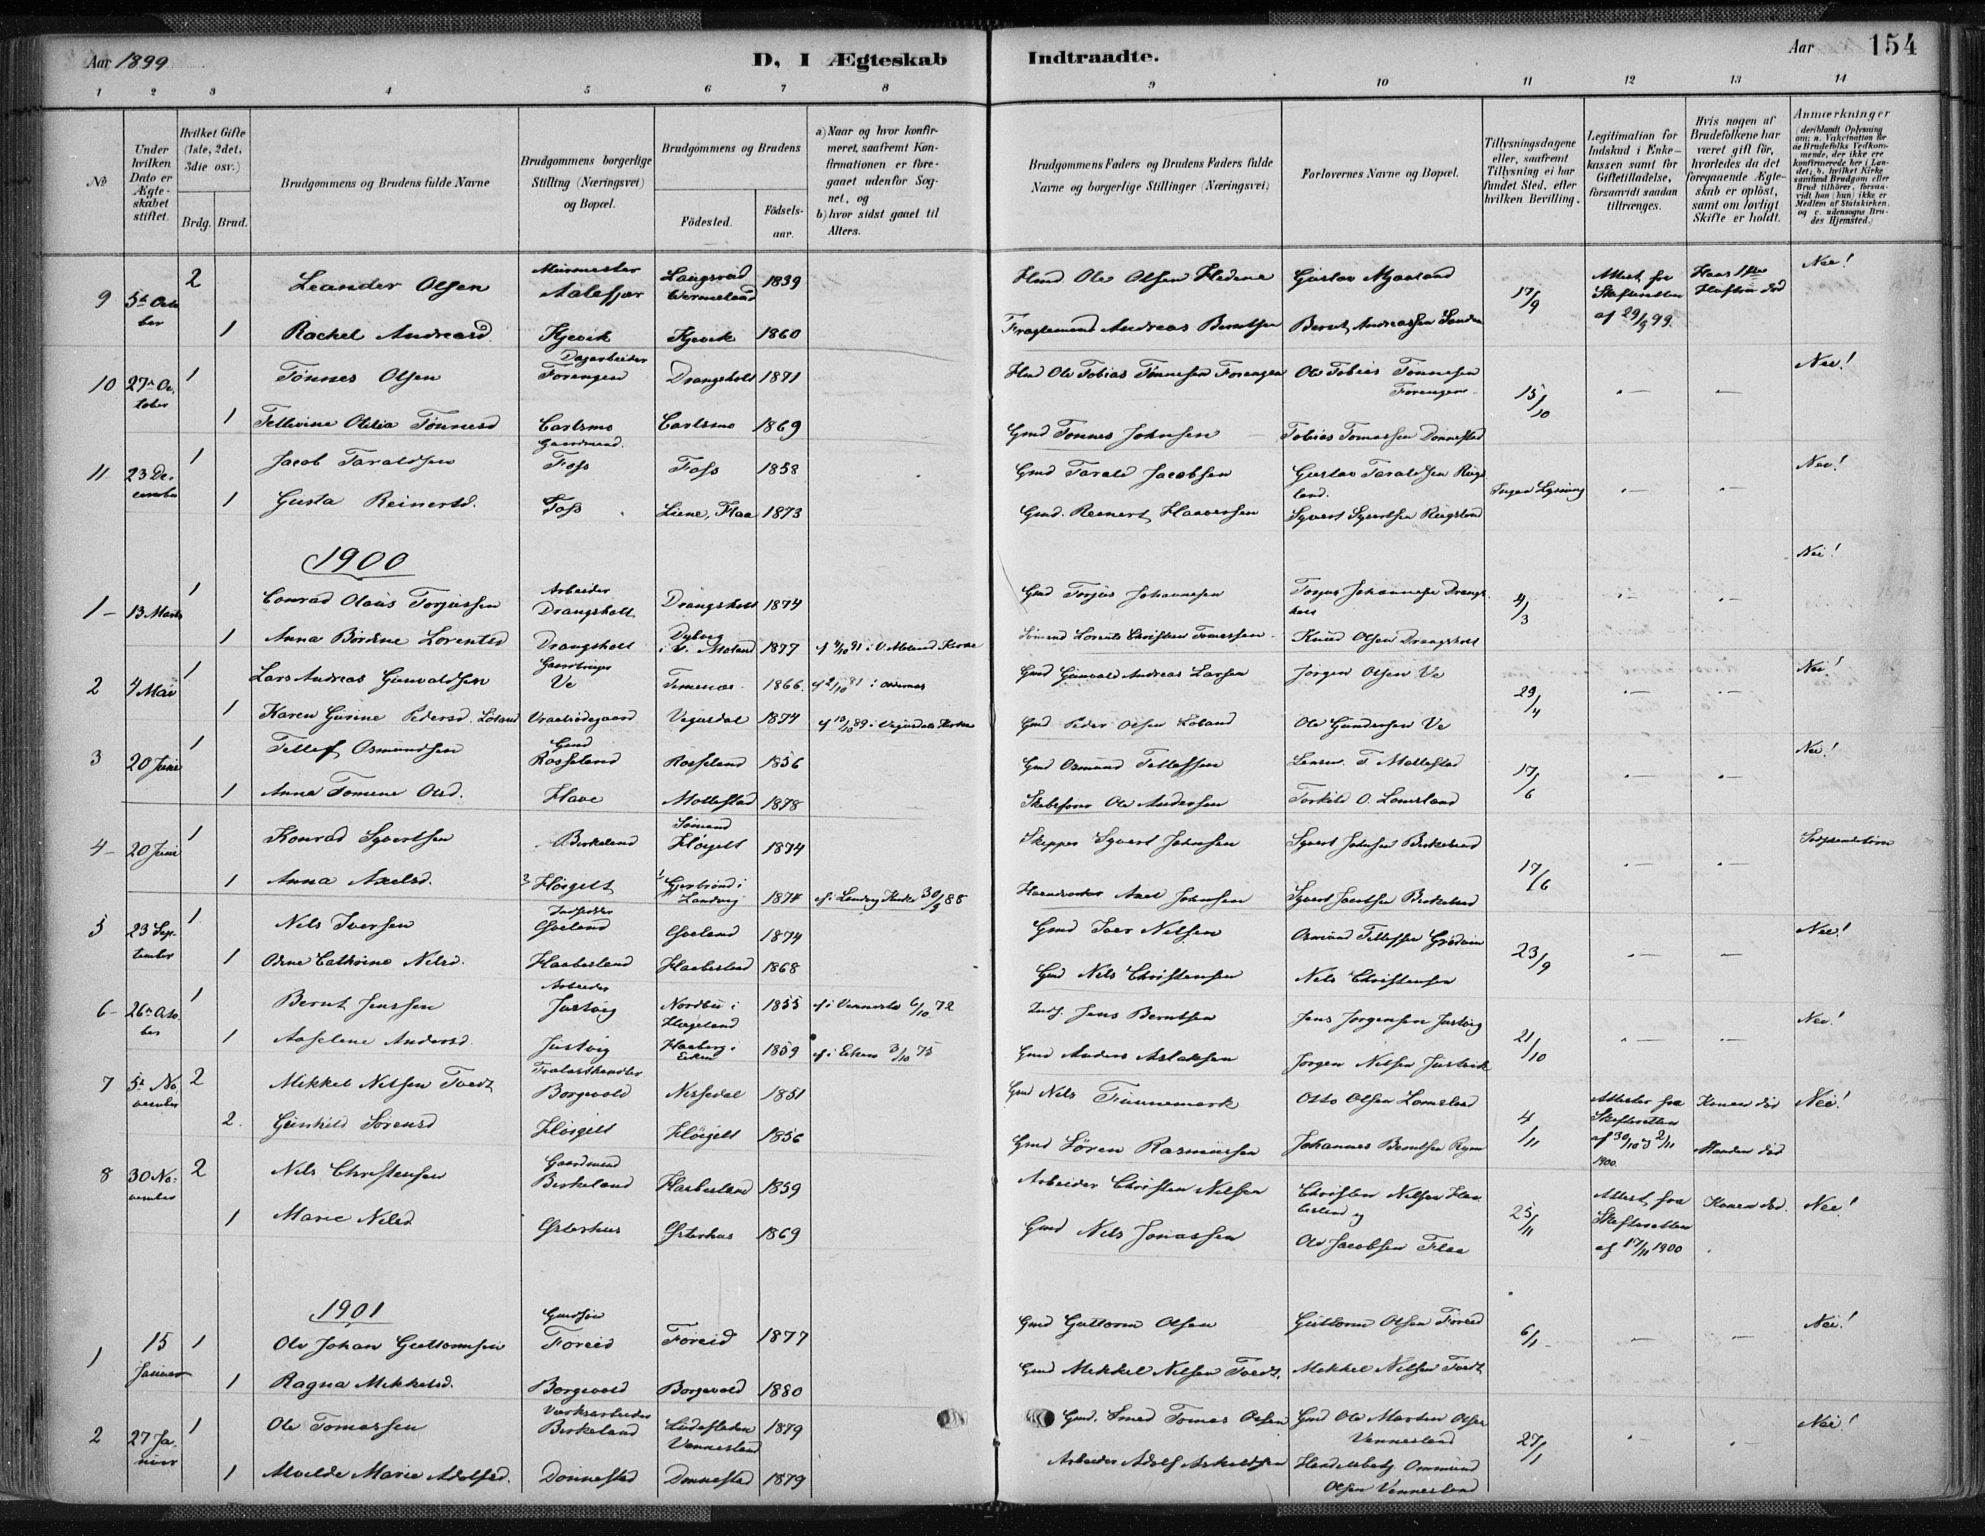 Aar 1899
D, I Ægteskab Indtraadte.
Aar 154
1 2 3 4 5 6 7 8 9 10 11 12 13 14
No
Under hvilken Dato er Ægteskabet stiftet.
Hvilket Gifte (1ste, 2det, 3die osv.)
Brdg. Brud.
Brudgommens og Brudens fulde Navne
Brudgommens borgerlige Stilling (Næringsvei) og Bopæl.
Brudgommens og Brudens
Fødested. Fødselsaar.
a) Naar og hvor konfirmeret, saafremt Konfirmationen er foregaaet udenfor Sognet, og
b) hvor sidst gaaet til Alters.
Brudgommens Faders og Brudens Faders fulde Navne og borgerlige Stillinger (Næringsvei)
Forlovernes Navne og Bopæl.
Tillysningsdagene eller, saafremt Tillysning ei har fundet Sted, efter hvilken Bevilling.
Legitimation for Indskud i Enkekassen samt for Giftetilladelse, forsaavidt saadan tiltrænges.
Hvis nogen af Brudefolkene har været gift før, hvorledes da det foregaaende Ægteskab er opløst, samt om lovligt Skifte er holdt.
Anmærkninger
9 5te October 2 Leander Olsen Murmester Aalefjær Langserud Wermeland 1839 Hmd Ole Olsen Hedene Gustav Mjaaland 17/9 Attest fra Skifteretten af 29/9 99. Hans 1ste Hustru død Nei!
1 Rachel Andreasd Kjevik Kjevik 1860 Fragtemand Andreas Berntsen Bernt Andreassen
10 27de October 1 Tønnes Olsen Dagarbeider Forengen Drangsholt 1871 Hmd Ole Tobias Tønnesen Forengen Ole Tobias Tønnesen Forengen 15/10 - - Nei!
1 Tellevine Otilia Tønnesd Carlsmo Carlsmo 1869 Gmd Tønnes Johnsen Tobias Tomassen Donnestad
11 23 December 1 Jacob Taraldsen Gaardmand Foss Foss 1858 Gmd Tarald Jacobsen Gustav Taraldsen Rugsland. Ingen Lysning - - Nei!
1 Gusta Reinertd. Foss Liene, Flaa 1873 Gmd. Reinert Haaversen Syvert Syvertsen Rugsland
1900 Nei!
1 13 Marts 1 Conrad Olaus Torjussen Arbeider Drangsholt Drangsholt 1874 Gmd Torjus Johannesen Torjus Johannesen Drangsholt 4/3 - -
1 Anna Bordine Lorentsd Drangsholt Dybvig i V. Moland 1877 cf 4/10 91 i V. Moland Kirke Sømand Lorents Christian Tomassen Knud Olsen Drangsholt
2 4 Mai 1 Lars Andreas Gunvaldsen Gaardbruger Ve Timenæs 1866. cf 2/10 81 i Gmd Gunvald Andreas Larsen Jørgen Olsen Ve 29/4 - - Nei!
1 Karen Gurine Pedersd. Loland Vraalsødegaard Vegusdal 1874 cf 13/10 89 i Vegusdals Kirke Gmd Peder Olsen Loland Ole Gundersen Ve
3 20 Juni 1 Tellef Osmundsen Gmd Rosseland Rosseland 1856 Gmd Osmund Tellefsen Lensm. T Mollestad 17/6 - - Nei!
1 Anna Tomine Olsd. Flaae Mollestad 1878 Ole Andersen Torkild O. Lomsland
4 20 Juni 1 Konrad Syvertsen Birkeland Sømand Høigelt 1874 Skipper Syvert Johnsen Syvert Johnsen Birkeland 17/6 - - Sødskendebørn
1 Anna Axelsd. Høigelt Gjerbrønd i Landvig 1874 cf i Landvig Kirke 30/9 88 Haandværker Axel Johnsen Syvert Jacobsen Birkeland
5 23 September 1 Nils Iversen Indsidder Gveland Gveland 1874 Gmd Iver Nilsen Osmund Tellefsen 23/9 - - Nei!
1 Osne Cathrine Nilsd. Haaberland Haaberland 1868 Gmd Nils Christensen Nils Christensen
6 26de October 1 Bernt Jensen Arbeider Justvig Nordbu i Hægeland 1855 cf i Vennesla 6/10 72 Inds. Jens Berntsen Jens Jørgensen Justvig 21/10 Nei!
1 Aaselene Andersd. Justvig Haaberg i Eiken 1859 cf i Eiken 3/10 75 Gmd Anders Aslaksen Jørgen Nilsen Justvik
7 5te November 2 Mikkel Nilsen Tvedt Trælasthandler Borgevold Nissedal 1851 Gmd Nils Finnemark Otto Olsen Lomsland 4/11 Attester fra Skifteretten af 30/10 og 2/11 1900. Konen død Nei!
2. Gunhild Sørensd Høigelt Høigelt 1856 Gmd Søren Rasmussen Johannes Berntsen Manden død
8 30 November 2 Nils Christensen Gaardmand Birkeland Haaberland 1859 Arbeider Christen Nilsen Christen Nilsen Haaberland og 25/11 Attest fra Skifteretten af 17/11 1900 Konen død. Nei!
1 Marie Nilsd Østerhus Østerhus 1869 Gmd Nils Jonassen Ole Jacobsen Flaa
1901
1 15 Januar 1 Ole Johan Guttormsen Gmdsøn Foreid Foreid 1877 Gmd Guttorm Olsen Guttorm Olsen Foreid 6/1 - - Nei!
1 Ragna Mikkelsd. Borgevold Borgevold 1880 Gmd Mikkel Nilsen Tvedt. Mikkel Nilsen Tvedt
2 27 Januar 1 Ole Tomassen Værksarbeider Birkeland Ludeflaten Vennesland 1879 Gmd. Smed Tomas Olsen Gmd Ole Martin Olsen Vennesland 27/1 - - Nei!
1 Alvilde Marie Adolfsd. Donnestad Donnestad 1879 Arbeider Adolf Askildsen Handelsbetj. Ommund Olsen Vennesland